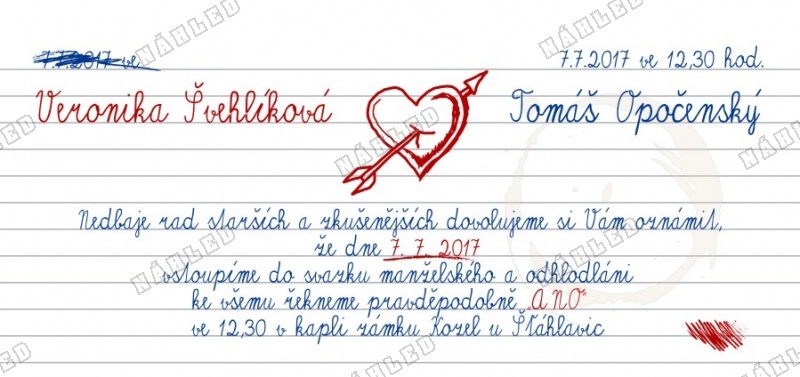 7.7.2017 ve
7.7.2017 ve 12,30 hod.
Veronika Švehlíková
Tomáš Opočenský
Nedbaje rad starších a zkušenějších dovolujeme si Vám oznámit,
že dne 7. 7. 2017
vstoupíme do svazku manželského a odhlodláni
ke všemu řekneme pravděpodobně „ANO“
ve 12,30 v kapli zámku Kozel u Šťáhlavic
NÁHLED
NÁHLED
NÁHLED
NÁHLED
NÁHLED
NÁHLED
NÁHLED
NÁHLED
NÁHLED
NÁHLED
NÁHLED